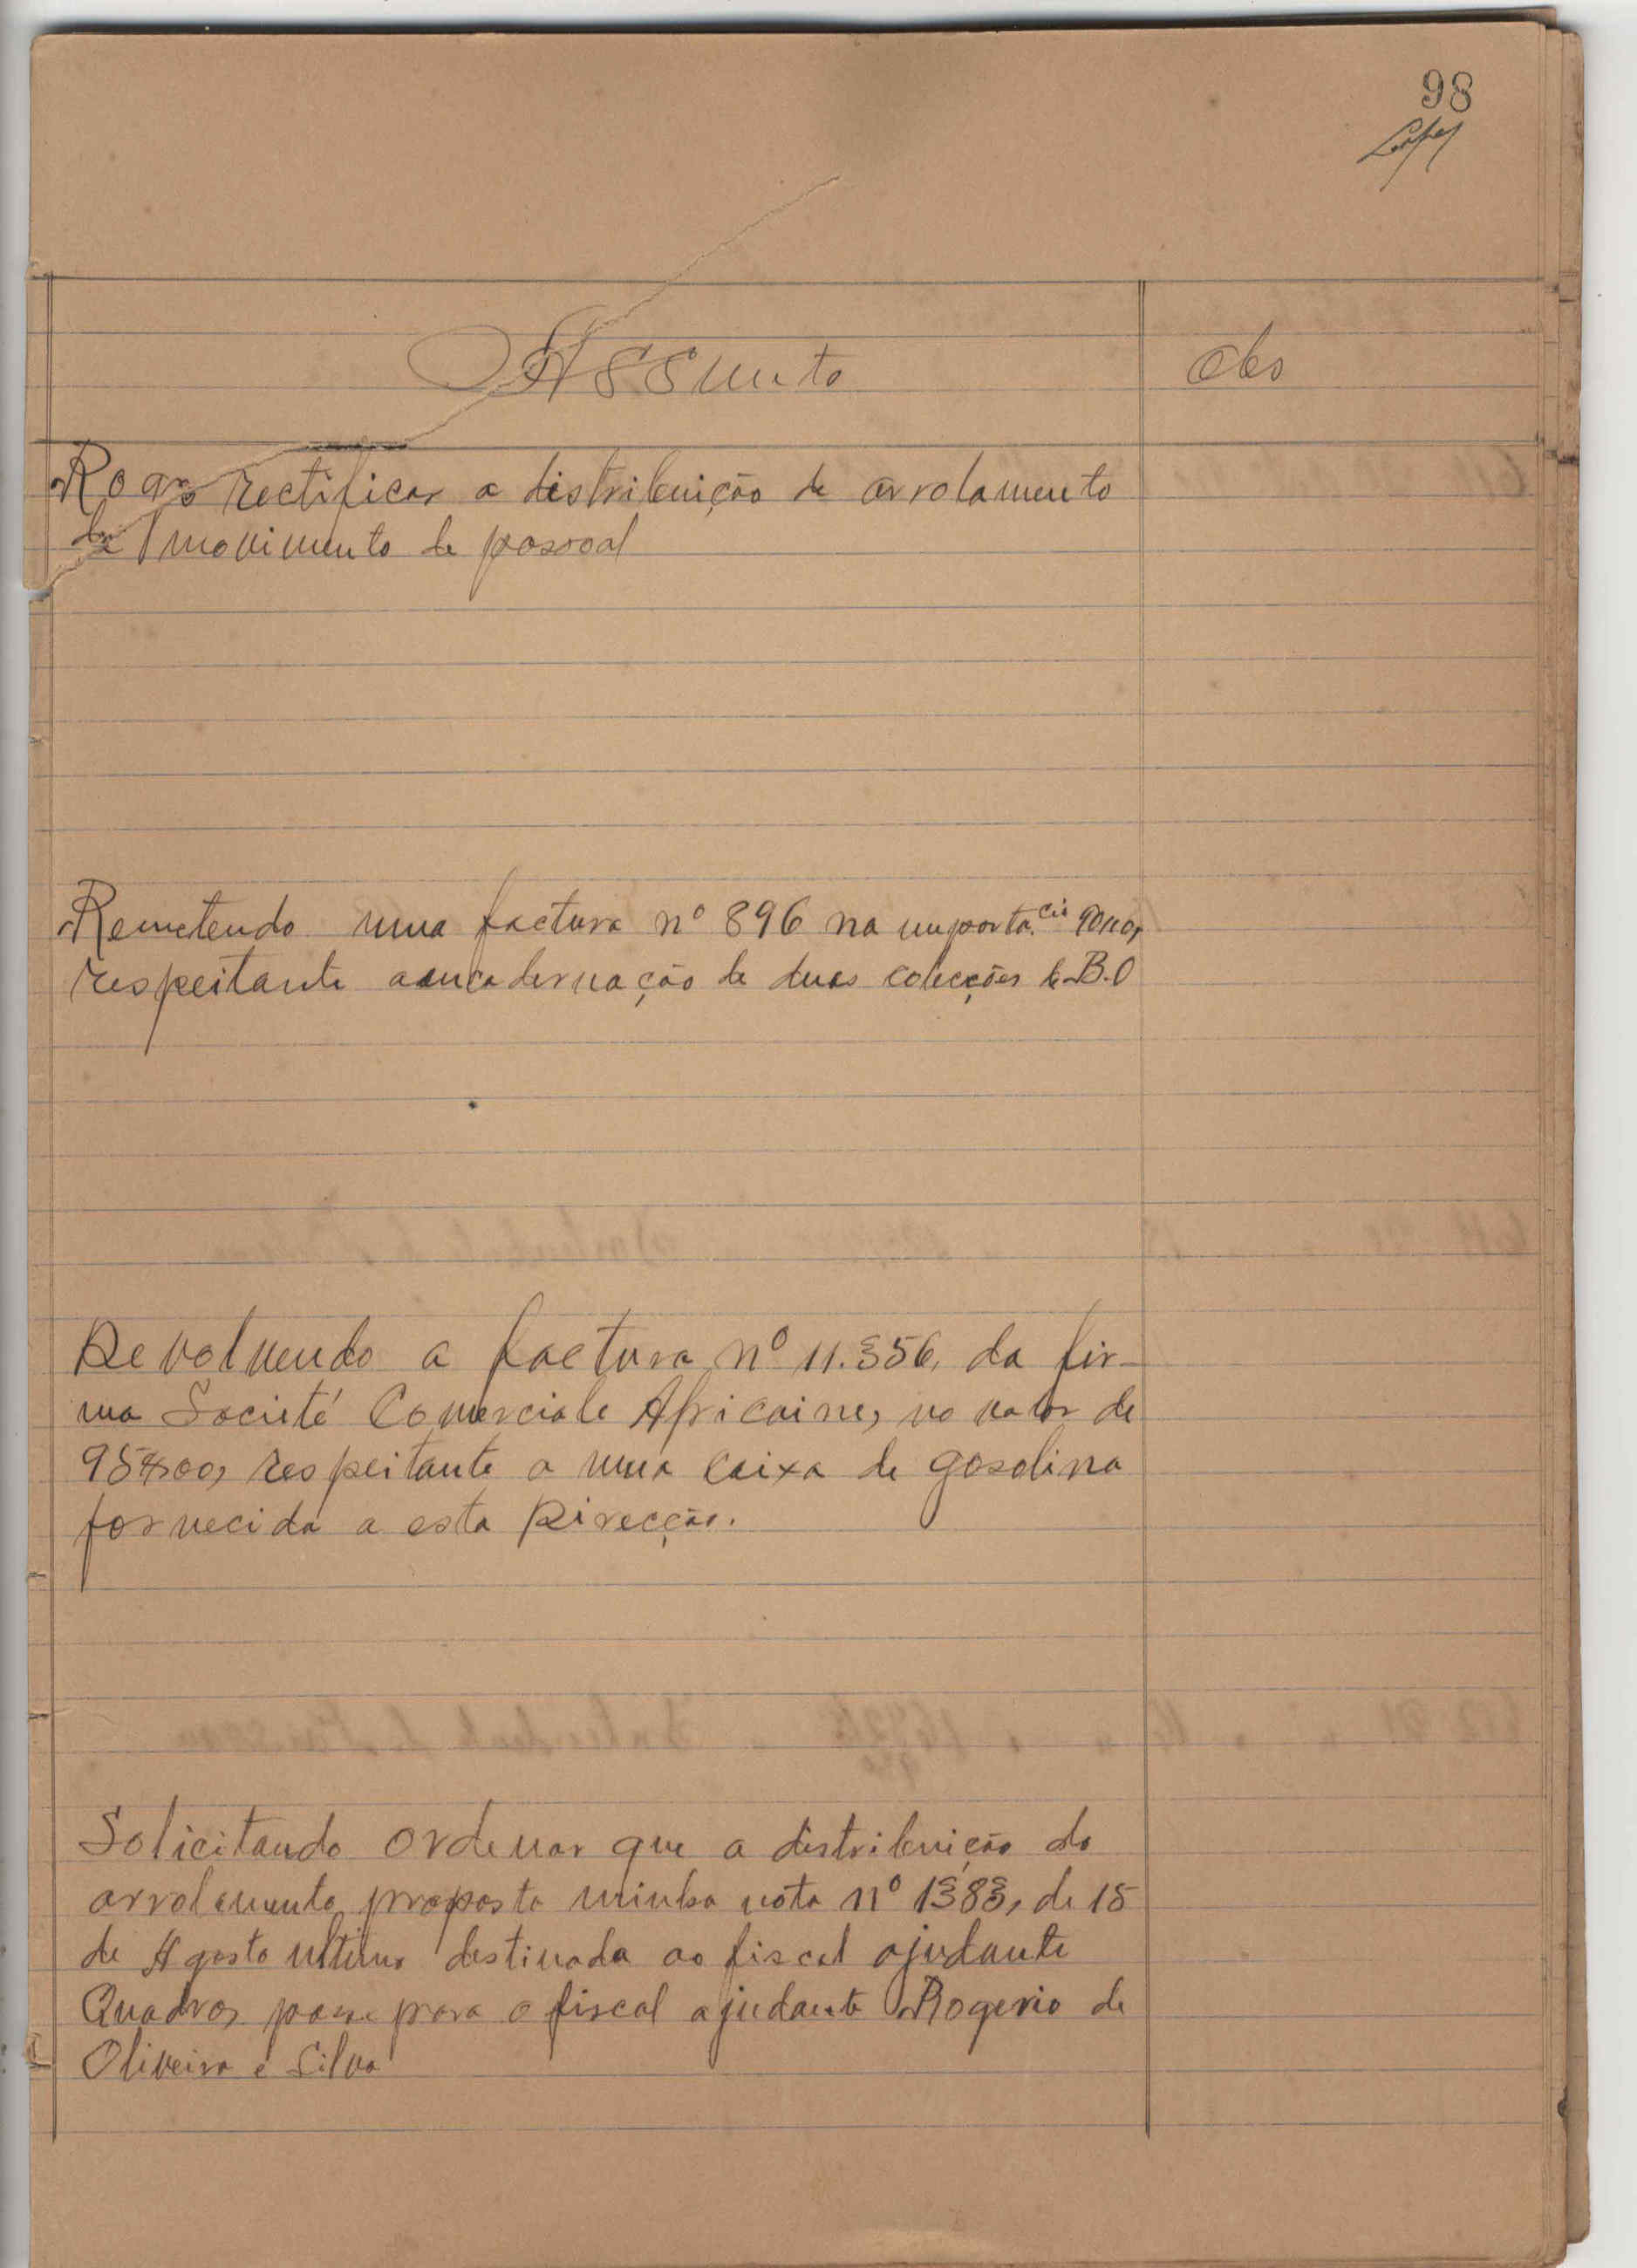 98
Lopes
Assunto
Obs
Rogo rectificar a distribuição de arrolamento
de movimento de pessoal
Remetendo uma factura nº 896 na importa.cia
respeitante a encadernação de duas colecções de B.O
Devolvendo a factura nº 11.356, da fir-
ma Societé Comerciale Africaine, no valor de
95$00, respeitante a uma caixa de gasolina
fornecida a esta Direcção.
Solicitando ordenar que a distribuição do
arrolamento proposta minha nota nº 1383, de 15
de Agosto ultimo destinada ao fiscal ajudante
Quadros passe para o fiscal ajudante Rogerio de
Oliveira e Silva